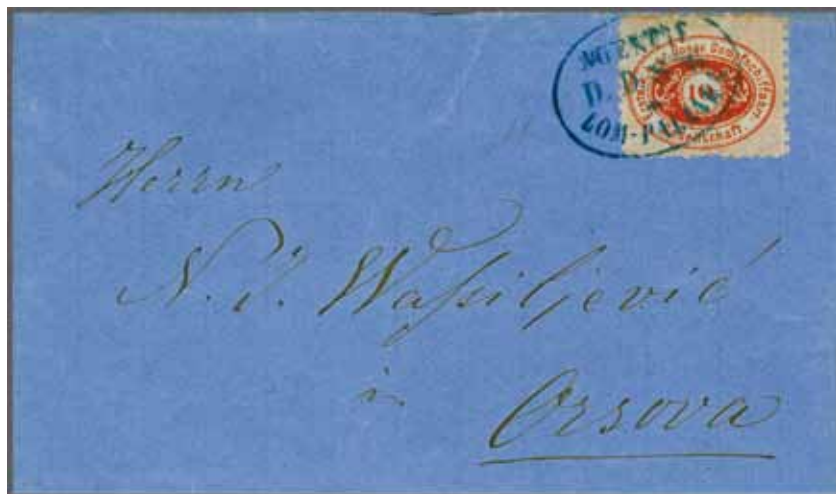 AGENTIE
D. D.
LOM-PALANKA
Donau Dampfschiffahrt
Gesellschaft.
10
Herrn
N. J. Waſsiljević
in
Orsova